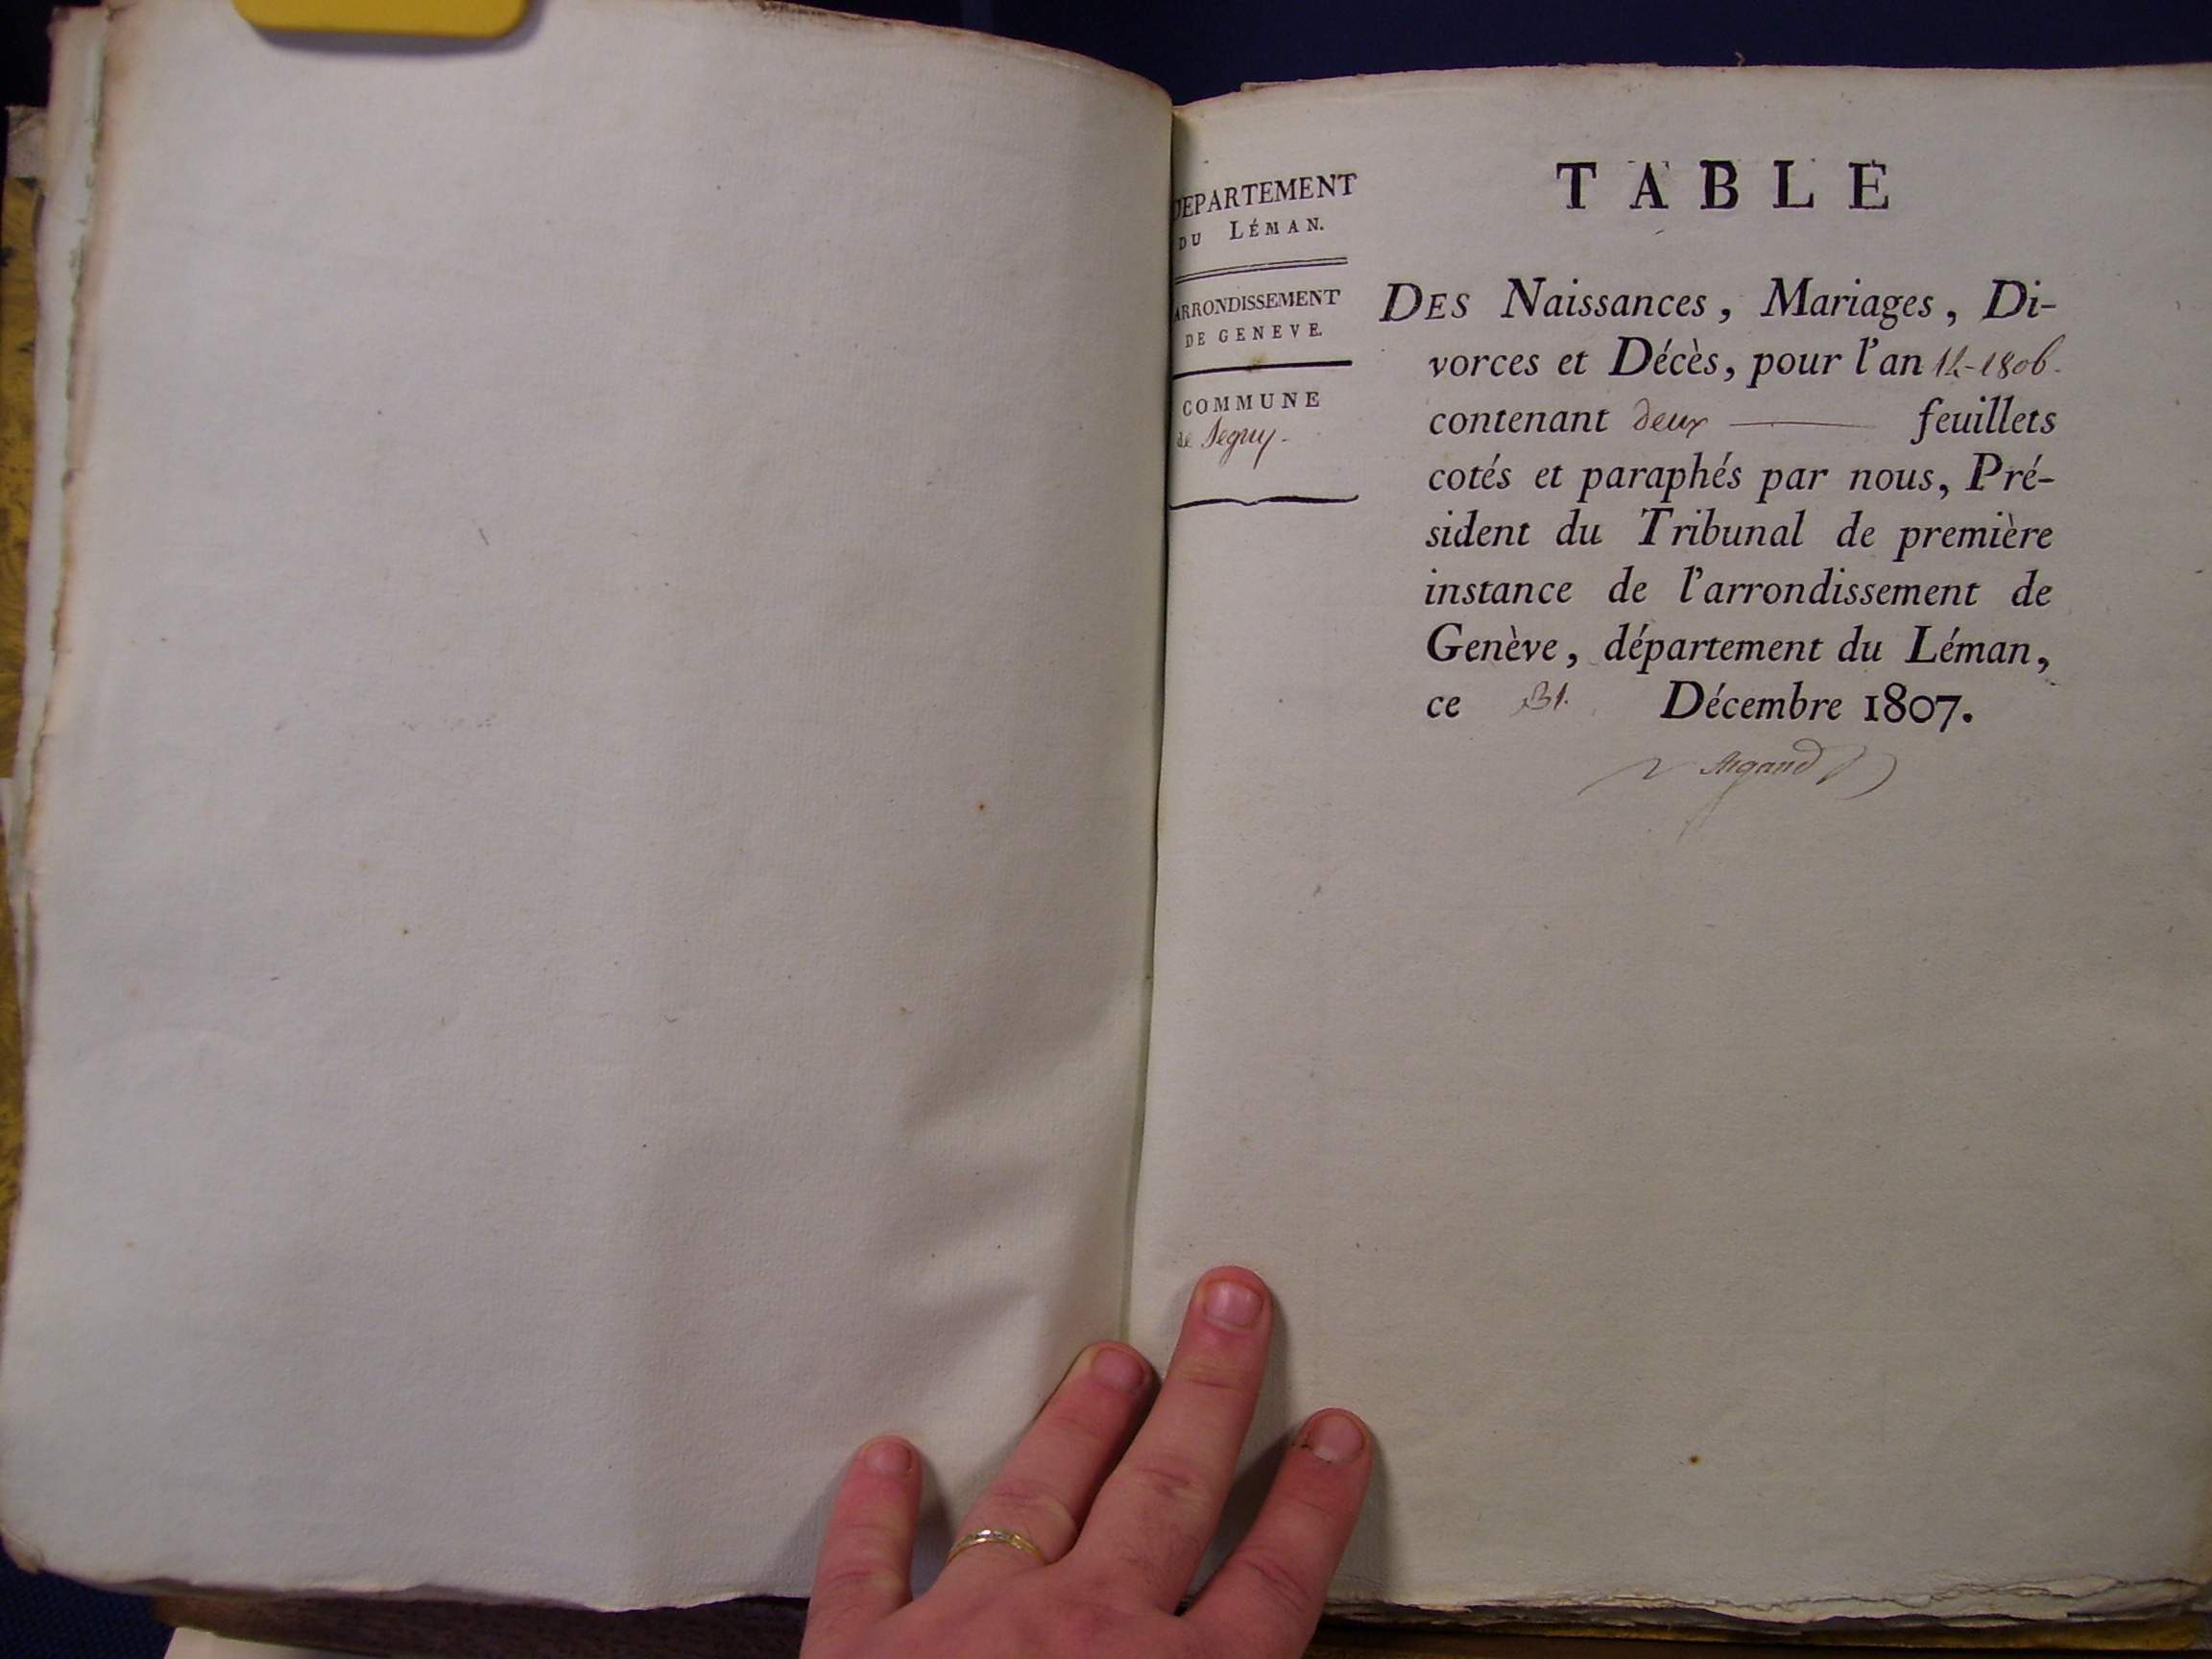 DEPARTEMENT
DU LÉMAN.
ARRONDISSEMENT
DE GENEVE.
COMMUNE
de Segny.
TABLE
DES Naissances, Mariages, Di-
vorces et Décès, pour l'an 14-1806.
contenant deux feuillets
cotés et paraphés par nous, Pré-
sident du Tribunal de première
instance de l'arrondissement de
Genève, département du Léman,
ce 31. Décembre 1807.
Argand